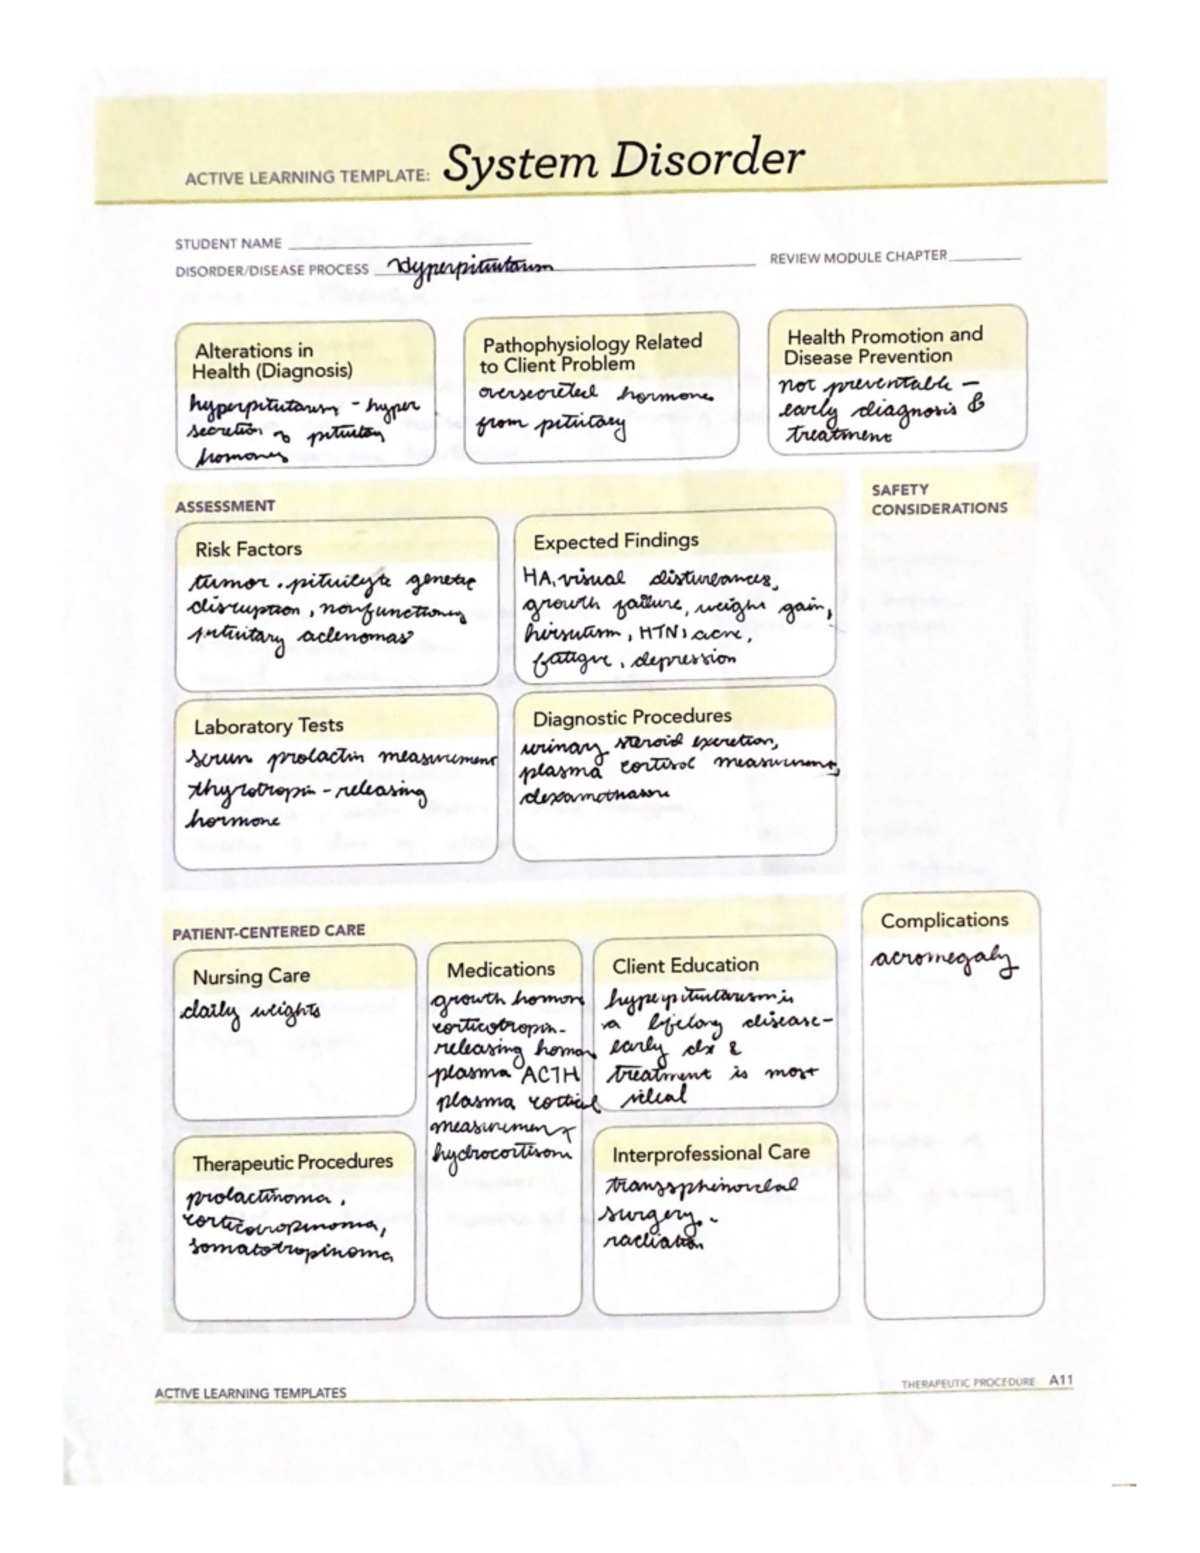 ACTIVE LEARNING TEMPLATE: System Disorder
STUDENT NAME
DISORDER/DISEASE PROCESS Hyperpituitarism
REVIEW MODULE CHAPTER
Alterations in
Health (Diagnosis)
hyperpituitarism - hyper
secretion of pituitary
hormones
Pathophysiology Related
to Client Problem
oversecreted hormones
from pituitary
Health Promotion and
Disease Prevention
not preventable -
early diagnosis &
treatment
ASSESSMENT
SAFETY
CONSIDERATIONS
Risk Factors
tumor, genetic
disruption, nonfunctioning
pituitary adenomas
Expected Findings
HA, visual disturbances,
growth failure, weight gain,
hirsutism, HTN, acne,
fatigue, depression
Laboratory Tests
serum prolactin measurement
thyrotropin-releasing
hormone
Diagnostic Procedures
urinary steroid excretion,
plasma cortisol measurement,
PATIENT-CENTERED CARE
Nursing Care
daily weights
Medications
growth hormone
corticotropin-
releasing hormone
plasma ACTH
plasma cortisol
measurement
hydrocortisone
Client Education
hyperpituitarism is
a lifelong disease-
early dx &
treatment is most
Therapeutic Procedures
prolactinoma,
corticotropinoma,
somatotropinoma
Interprofessional Care
transsphenoidal
surgery.
radiation
Complications
acromegaly
ACTIVE LEARNING TEMPLATES
THERAPEUTIC PROCEDURE A11